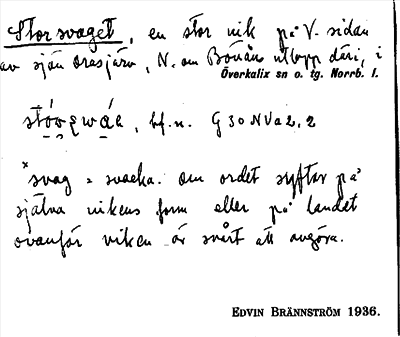 Storsvaget, en stor vik på V. sidan
av sjön Orasjärv, N. om Bönåns utlopp däri, i
Överkalix sn o. tg. Norrb. l.
bf. n. G 30 NV a 2, 2
"svag = svacka. Om ordet syftar på
själva vikens form eller på landet
ovanför viken är svårt att avgöra.
EDVIN BRÄNNSTRÖM 1936.